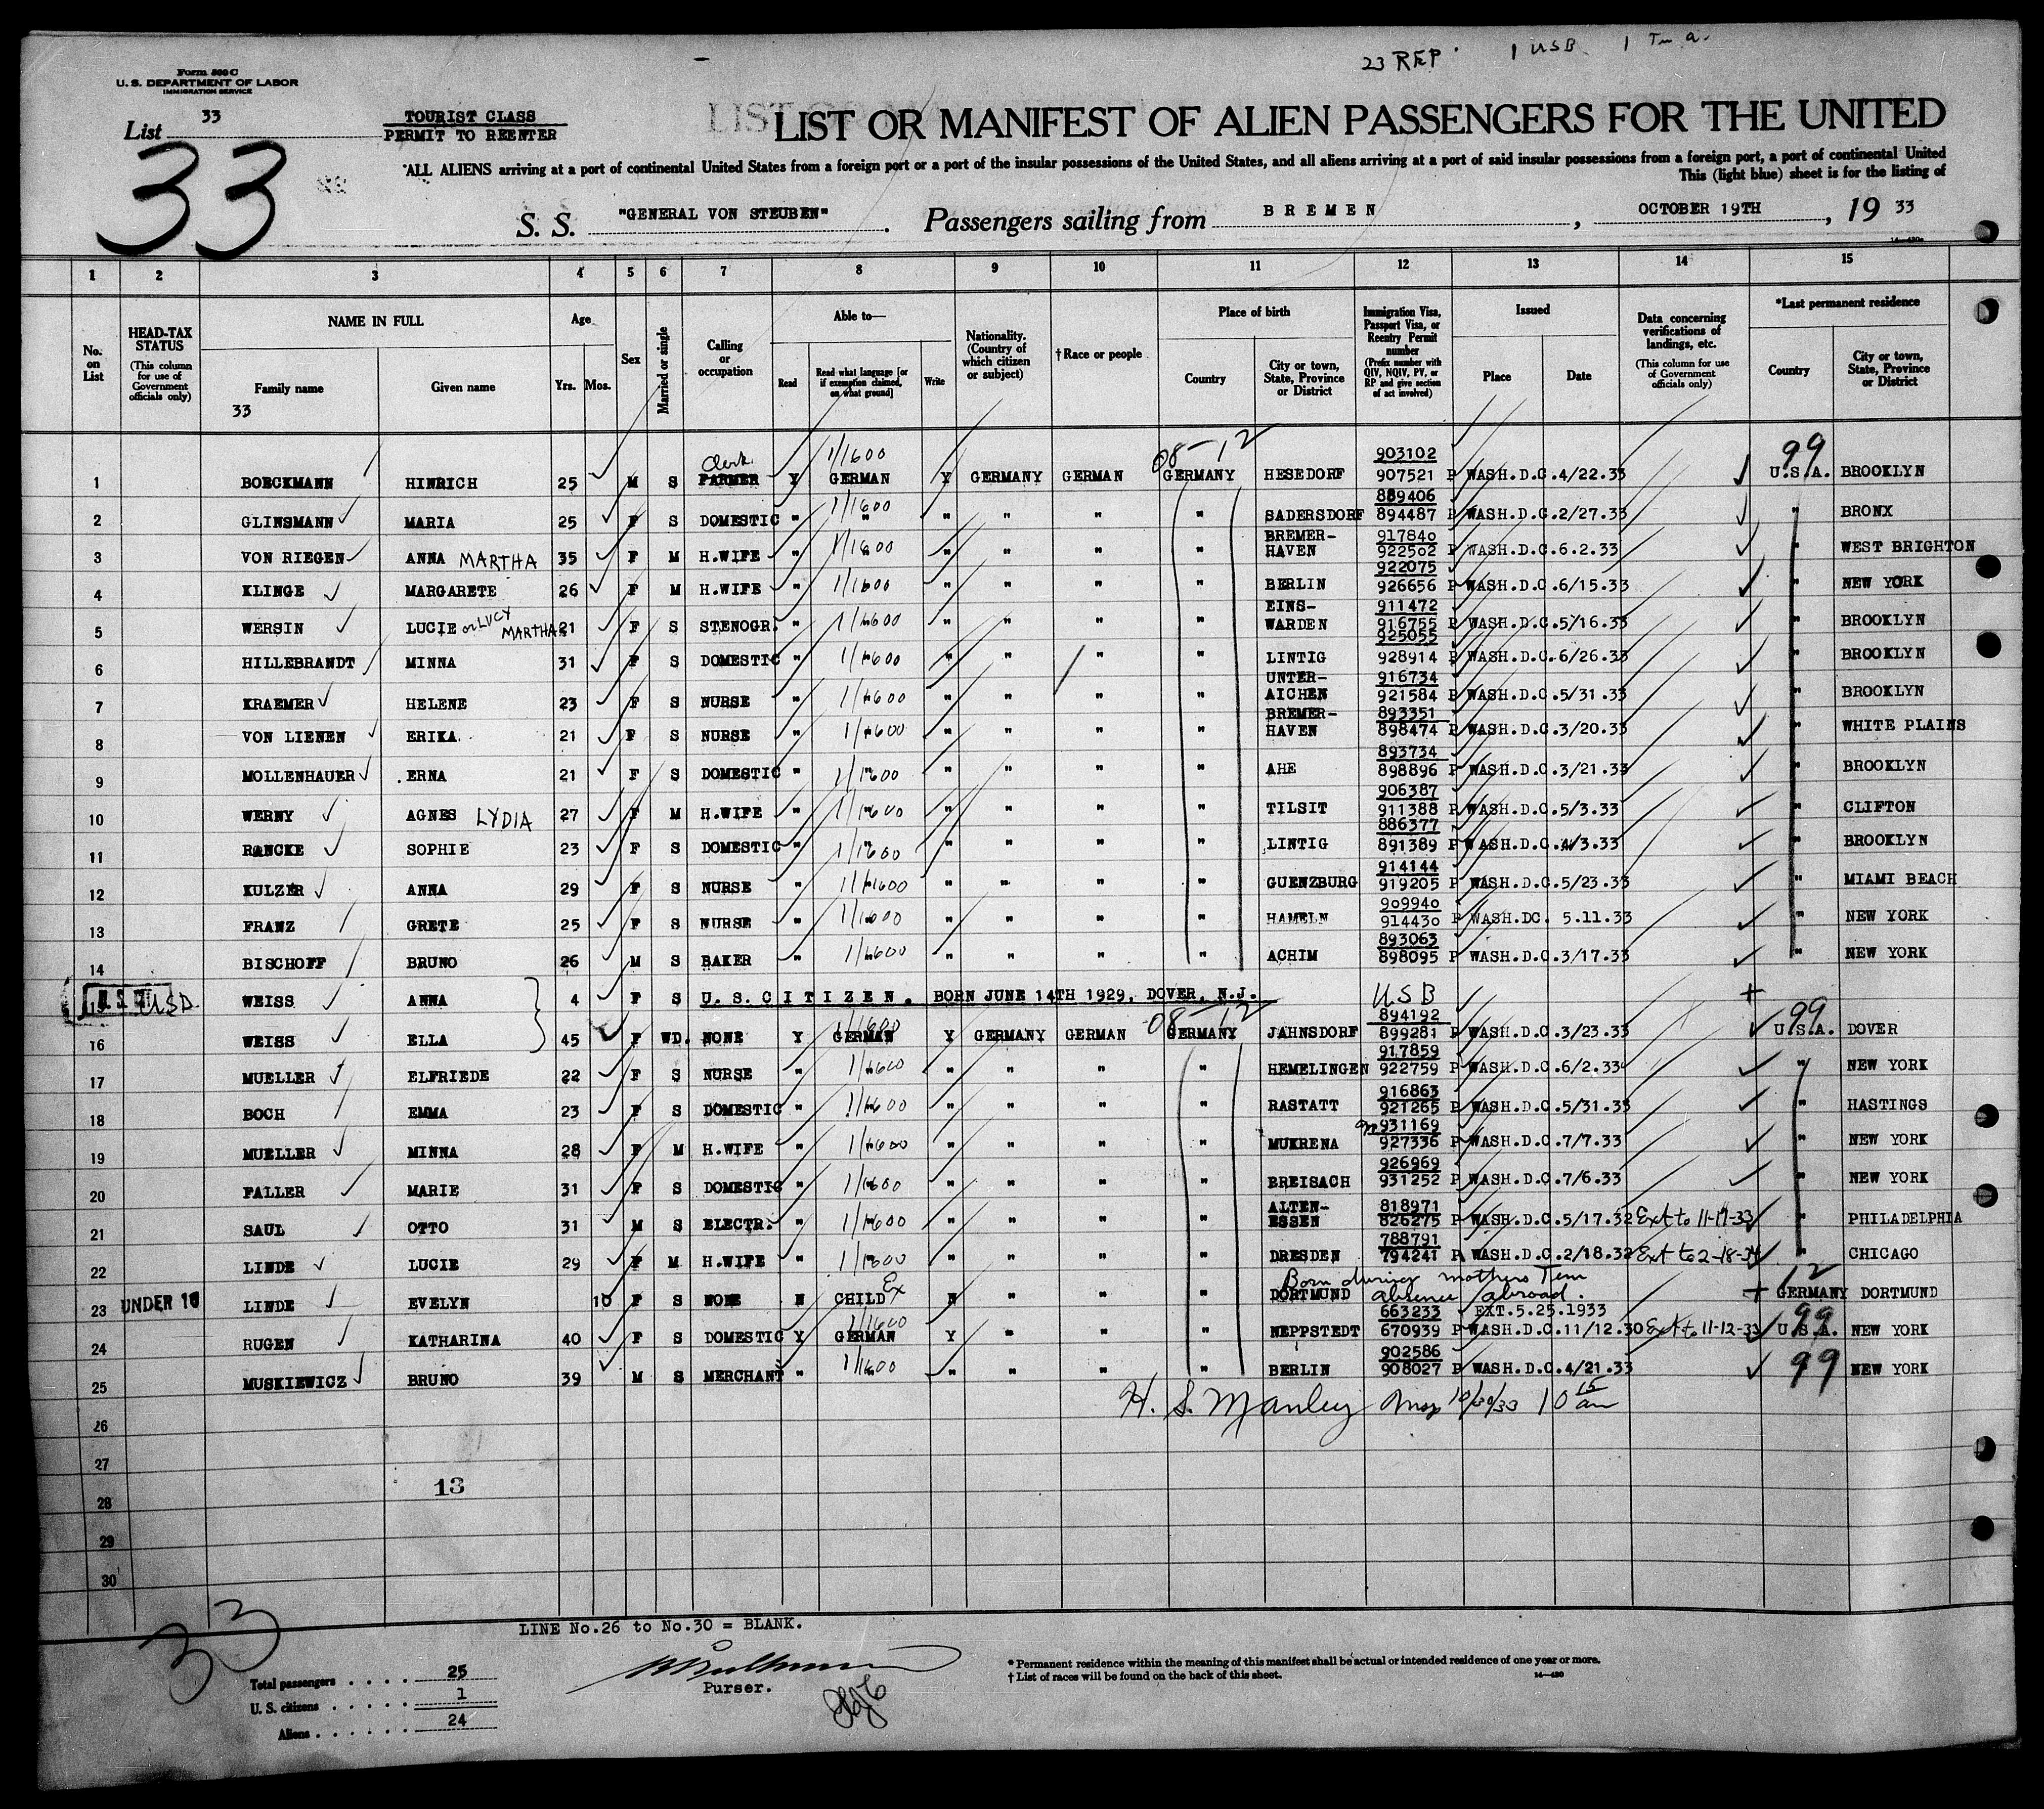 23 REP 1 USB
Form 500 C
U. S. DEPARTMENT OF LABOR
IMMIGRATION SERVICE
List 33
TOURIST CLASS
PERMIT TO REENTER
33
LIST OR MANIFEST OF ALIEN PASSENGERS FOR THE UNITED
ALL ALIENS arriving at a port of continental United States from a foreign port or a port of the insular possessions of the United States, and all aliens arriving at a port of said insular possessions from a foreign port, a port of continental United
This (light blue) sheet is for the listing of
S. S. "GENERAL VON STEUBEN". Passengers sailing from BREMEN, OCTOBER 19TH, 19 33
1 2 3 4 5 6 7 8 9 10 11 12 13 14 15
No. on List
HEAD-TAX STATUS (This column for use of Government officials only)
NAME IN FULL
Family name
Given name
33
Age
Yrs. Mos.
Sex
Married or single
Calling or occupation
Able to—
Read
Read what language [or if exemption claimed, on what ground]
Write
Nationality. (Country of which citizen or subject)
†Race or people
Place of birth
Country
City or town, State, Province or District
Immigration Visa, Passport Visa, or Reentry Permit number (Prefix number with QIV, NQIV, PV, or RP and give section of act involved)
Issued
Place
Date
Data concerning verifications of landings, etc. (This column for use of Government officials only)
*Last permanent residence
Country
City or town, State, Province or District
Clerk 1/1600 08-12 903102 99
1 BOECKMANN HINRICH 25 M S FARMER Y GERMAN Y GERMANY GERMAN GERMANY HESEDORF 907521 P WASH.D.C.4/22.33 U.S.A. BROOKLYN
1/1600 889406
2 GLINSMANN MARIA 25 F S DOMESTIC " " " " " " SADERSDORF 894487 P WASH.D.C.2/27.33 " BRONX
1/1600 BREMER- 917840
3 VON RIEGEN ANNA MARTHA 35 F M H.WIFE " " " " " " HAVEN 922502 P WASH.D.C.6.2.33 " WEST BRIGHTON
1/1600 922075
4 KLINGE MARGARETE 26 F M H.WIFE " " " " " " BERLIN 926656 P WASH.D.C.6/15.33 " NEW YORK
1/1600 EINS- 911472
5 WERSIN LUCIE or LUCY MARTHA 21 F S STENOGR. " " " " " " WARDEN 916755 P WASH.D.C.5/16.33 " BROOKLYN
1/1600 925055
6 HILLEBRANDT MINNA 31 F S DOMESTIC " " " " " " LINTIG 928914 P WASH.D.C.6/26.33 " BROOKLYN
1/1600 UNTER- 916734
7 KRAEMER HELENE 23 F S NURSE " " " " " " AICHEN 921584 P WASH.D.C.5/31.33 " BROOKLYN
1/1600 BREMER- 893351
8 VON LIENEN ERIKA. 21 F S NURSE " " " " " " HAVEN 898474 P WASH.D.C.3/20.33 " WHITE PLAINS
1/1600 893734
9 MOLLENHAUER ERNA 21 F S DOMESTIC " " " " " " AHE 898896 P WASH.D.C.3/21.33 " BROOKLYN
1/1600 906387
10 WERNY AGNES LYDIA 27 F M H.WIFE " " " " " " TILSIT 911388 P WASH.D.C.5/3.33 " CLIFTON
1/1600 886377
11 RANCKE SOPHIE 23 F S DOMESTIC " " " " " " LINTIG 891389 P WASH.D.C. /3.33 " BROOKLYN
1/1600 914144
12 KULZER ANNA 29 F S NURSE " " " " " " GUENZBURG 919205 P WASH.D.C.5/23.33 " MIAMI BEACH
1/1600 909940
13 FRANZ GRETE 25 F S NURSE " " " " " " HAMELN 914430 P WASH.DC. 5.11.33 " NEW YORK
1/1600 893063
14 BISCHOFF BRUNO 26 M S BAKER " " " " " " ACHIM 898095 P WASH.D.C.3/17.33 " NEW YORK
USB WEISS ANNA 4 F S U.S.CITIZEN. BORN JUNE 14TH 1929, DOVER, N.J. USB
1/1600 08-12 894192 99
16 WEISS ELLA 45 F WD. NONE Y GERMAN Y GERMANY GERMAN GERMANY JAHNSDORF 899281 P WASH.D.C.3/23.33 U.S.A. DOVER
1/1600 917859
17 MUELLER ELFRIEDE 22 F S NURSE " " " " " " HEMELINGEN 922759 P WASH.D.C.6/2.33 " NEW YORK
1/1600 916863
18 BOCH EMMA 23 F S DOMESTIC " " " " " " RASTATT 921265 P WASH.D.C.5/31.33 " HASTINGS
1/1600 931169
19 MUELLER MINNA 28 F M H.WIFE " " " " " " MUKRENA 927336 P WASH.D.C.7/7.33 " NEW YORK
1/1600 926969
20 FALLER MARIE 31 F S DOMESTIC " " " " " " BREISACH 931252 P WASH.D.C.7/6.33 " NEW YORK
1/1600 ALTEN- 818971
21 SAUL OTTO 31 M S ELECTR. " " " " " " ESSEN 826275 P WASH.D.C.5/17.32 Ext to 11-17-33 " PHILADELPHIA
1/1600 788791
22 LINDE LUCIE 29 F M H.WIFE " " " " " " DRESDEN 794241 P WASH.D.C.2/18.32 Ext to 2-18-34 " CHICAGO
Ex Born during mothers Tem absence abroad. 12
23 UNDER 16 LINDE EVELYN 10 F S NONE N CHILD N " " " DORTMUND GERMANY DORTMUND
1/1600 663233 EXT.5.25.1933 99
24 RUGEN KATHARINA 40 F S DOMESTIC Y GERMAN Y " " " NEPPSTEDT 670939 P WASH.D.C.11/12.30 Ext to 11-12-33 U.S.A. NEW YORK
1/1600 902586
25 MUSKIEWICZ BRUNO 39 M S MERCHANT " " " " " " BERLIN 908027 P WASH.D.C.4/21.33 99 NEW YORK
H. S. Manley Insp 10/30/33 10 15 am
26
27
13
28
29
30
33
LINE No.26 to No.30 = BLANK.
Total passengers . . . . 25
U. S. citizens . . . . . 1
Aliens . . . . . . 24
Purser.
* Permanent residence within the meaning of this manifest shall be actual or intended residence of one year or more.
† List of races will be found on the back of this sheet.
14—430